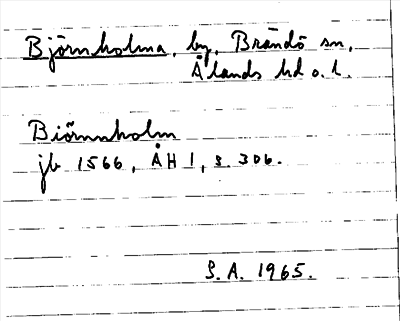 Björnholma, by, Brändö sn,
Ålands hd o. l.
Biörnnholm
jb 1566, ÅH 1, s. 306.
S. A. 1965.